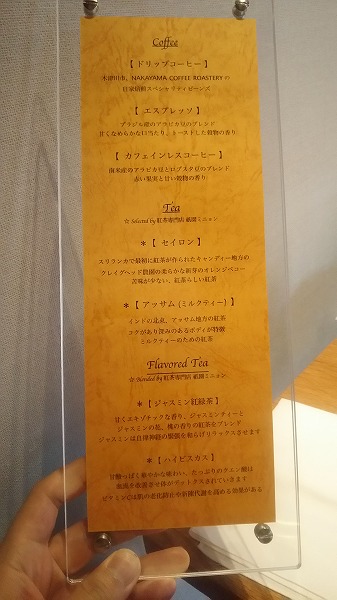 Coffee
【 ドリップコーヒー 】
木津川市、NAKAYAMA COFFEE ROASTERY の
自家焙煎スペシャリティビーンズ
【 エスプレッソ 】
ブラジル産のアラビカ豆のブレンド
甘くなめらかな口当たり、トーストした穀物の香り
【 カフェインレスコーヒー 】
南米産のアラビカ豆とロブスタ豆のブレンド
赤い果実と甘い穀物の香り
Tea
☆ Selected by 紅茶専門店 祇園ミニョン
＊【 セイロン 】
スリランカで最初に紅茶が作られたキャンディー地方の
クレイグヘッド農園の柔らかな新芽のオレンジペコー
苦味が少ない、紅茶らしい紅茶
＊【 アッサム (ミルクティー) 】
インドの北東、アッサム地方の紅茶
コクがあり深みのあるボディが特徴
ミルクティーのための紅茶
Flavored Tea
☆ Blended by 紅茶専門店 祇園ミニョン
＊【 ジャスミン紅緑茶 】
甘くエキゾチックな香り、ジャスミンティーと
ジャスミンの花、橘の香りの紅茶をブレンド
ジャスミンは自律神経の緊張を和らげリラックスさせます
＊【 ハイビスカス 】
甘酸っぱく華やかな味わい、たっぷりのクエン酸は
血流を改善させ体がデトックスされていきます
ビタミンCは肌の老化防止や新陳代謝を高める効果がある